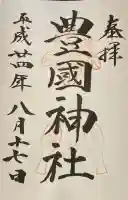 奉拝
豊國神社
平成廿四年八月十七日